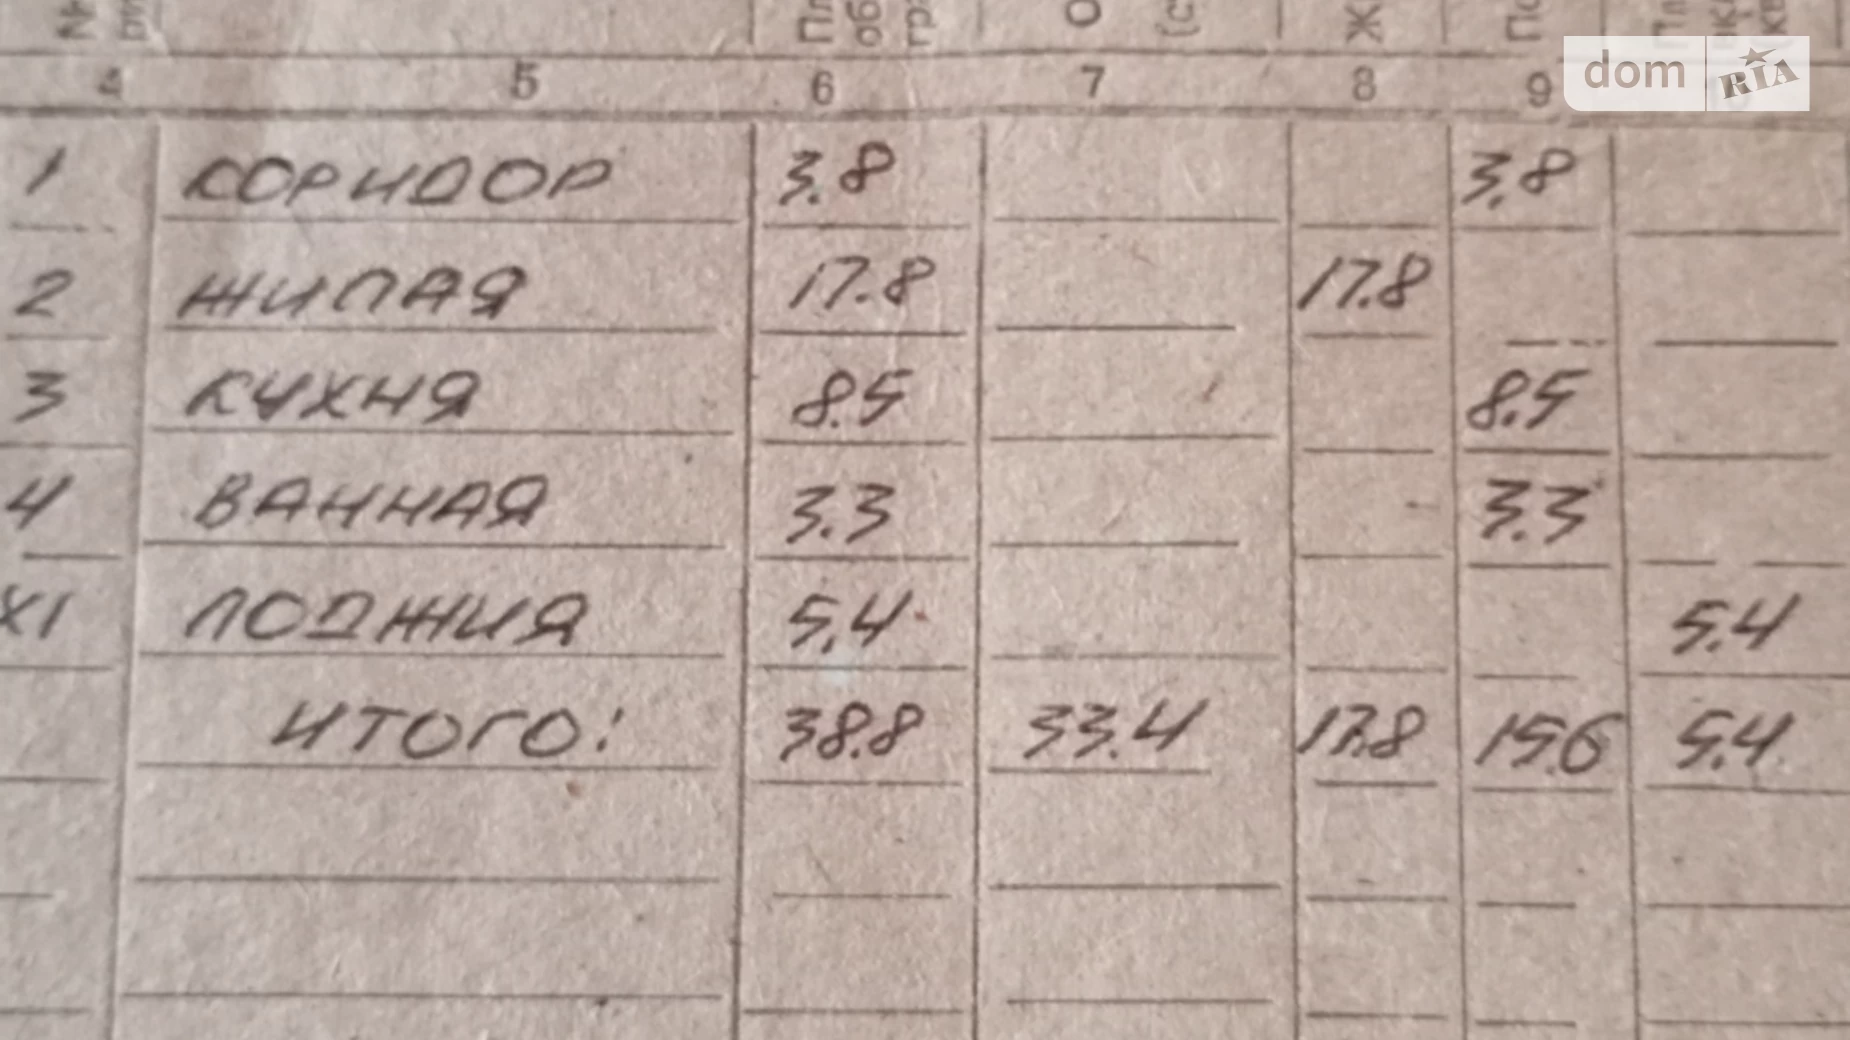 dom RIA
4 5 6 7 8 9
1 КОРИДОР 3.8 3.8
2 ЖИЛАЯ 17.8 17.8
3 КУХНЯ 8.5 8.5
4 ВАННАЯ 3.3 3.3
XI ЛОДЖИЯ 5.4 5.4
ИТОГО: 38.8 33.4 17.8 15.6 5.4